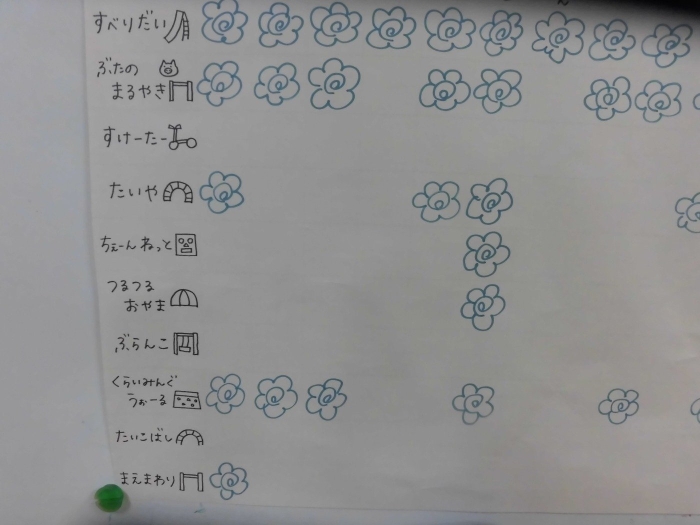 すべりだい
ぶたの
まるやき
すけーたー
たいや
ちぇーんねっと
つるつる
おやま
ぶらんこ
くらいみんぐ
うぉーる
たいこばし
まえまわり